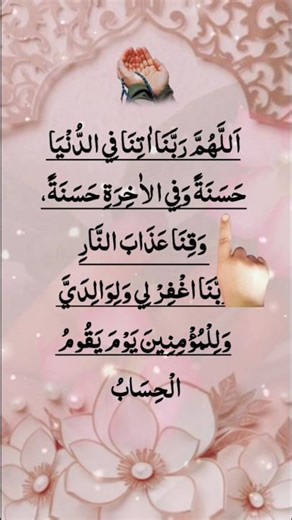 اَللَّهُمَّ رَبَّنَا اٰتِنَا فِي الدُّنْيَا
حَسَنَةً وَفِي الْاٰخِرَةِ حَسَنَةً،
وَقِنَا عَذَابَ النَّارِ
بَّنَا اغْفِرْ لِي وَلِوَالِدَيَّ
وَلِلْمُؤْمِنِينَ يَوْمَ يَقُومُ
الْحِسَابُ